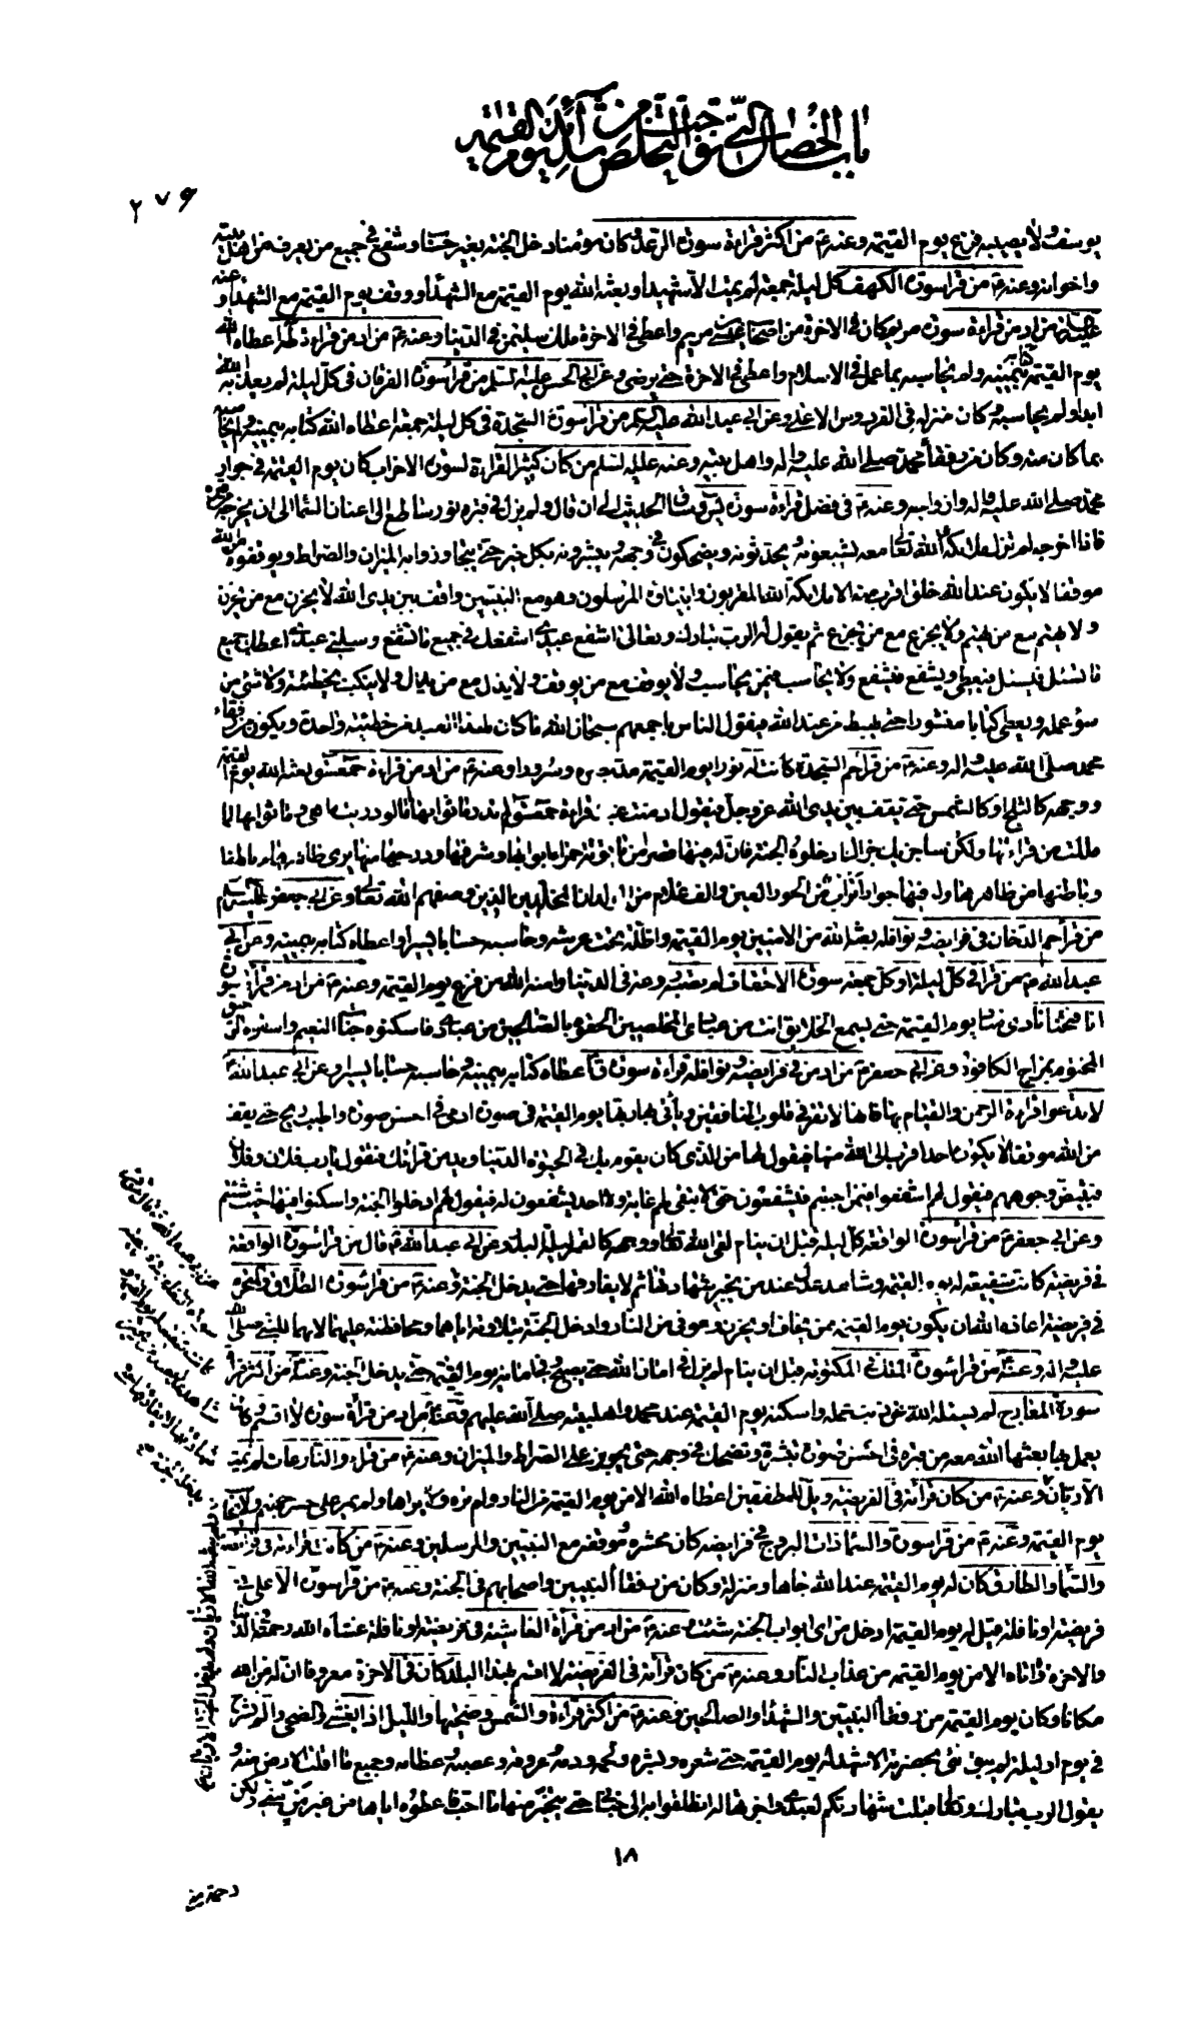 باب الخصال التي توجب التخلص من شدائد يوم القيمة
٢٧۶
يوسف ولا يصيبه فزع يوم القيمة وعنه ع من اكثر قراءة سورة الرعد وكان مؤمنا دخل الجنة بغير حساب وشفع في جميع من يعرف من اهل بيته
واخوانه وعنه ع من قرا سورة الكهف كل ليلة جمعة لم يمت الا شهيدا وبعثه الله يوم القيمة مع الشهداء ووقف يوم القيمة مع الشهداء و عنه
عليه السلام من ادمن قراءة سورة مريم كان في الاخرة من اصحاب عيسى بن مريم واعطى في الاخرة ملك سليمن في الدنيا وعنه ع من ادمن قراءة طه اعطاه الله
يوم القيمة كتابه بيمينه ولم يحاسبه بما عمل في الاسلام واعطى في الاخرة حتى يرضى وعن ابي الحسن عليه السلم من قرا سورة الفرقان في كل ليلة لم يعذبه الله
ابدا ولم يحاسبه وكان منزله في الفردوس الاعلى وعن ابي عبد الله عليه السلم من قرا سورة السجدة في كل ليلة جمعة اعطاه الله كتابه بيمينه ولم يحاسبه
بما كان منه وكان من رفقاء محمد صلى الله عليه واله واهل بيته وعنه عليه السلم من كان كثير القراءة لسورة الاحزاب كان يوم القيمة في جوار
محمد صلى الله عليه واله وازواجه وعنه ع في فضل قراءة سورة يس وساق الحديث الى ان قال ولم يزل في قبره نور ساطع الى اعنان السماء الى ان يخرجه من قبره
فاذا اخرجه لم تزل ملائكة الله تعالى معه يشيعونه ويحدثونه ويضحكون في وجهه ويبشرونه بكل خير حتى يتجاوزوا به الميزان والصراط ويوقفوه من الله
موقفا لا يكون عند الله خلق اقرب منه الا ملائكة الله المقربون وانبياؤه المرسلون وهو مع النبيين واقف بين يدي الله لا يحزن مع من يحزن
ولا يهتم مع من يهتم ولا يجزع مع من يجزع ثم يقول له الرب تبارك وتعالى اشفع عبدي اشفعك في جميع ما تشفع وسلني عبدي اعطك جميع
ما تسئل فيسئل فيعطى ويشفع فيشفع ولا يحاسب فيمن يحاسب ولا يوقف مع من يوقف ولا يذل مع من يذل ولا ينكب بخطيئة ولا شئ من
سوء عمله ويعطى كتابا منشورا حتى يهبط من عند الله فيقول الناس باجمعهم سبحان الله ما كان لهذا العبد من خطيئة واحدة ويكون من رفقاء
محمد صلى الله عليه واله وعنه ع من قرا حم السجدة كانت له نورا يوم القيمة مد بصره وسرورا وعنه ع من ادمن قراءة حمعسق بعثه الله يوم القيمة
ووجهه كالثلج او كالشمس حتى يقف بين يدي الله عز وجل فيقول ادمنت عبدي قراءة حمعسق ولم تدر ما ثوابها اما لو دريت ما هي وما ثوابها لما
مللت من قراءتها ولكن ساجزيك جزاك ادخلوه الجنة فان له فيها قصرا من ياقوتة حمراء ابوابها وشرفها ودرجها منها يرى ظاهرها من باطنها
وباطنها من ظاهرها وله فيها جوار اتراب من الحور العين والف غلام من الولدان المخلدين الذين وصفهم الله تعالى وعن ابي جعفر عليه السلام
من قرا حم الدخان في فرايضه ونوافله بعثه الله من الامنين يوم القيمة واظله تحت عرشه وحاسبه حسابا يسيرا واعطاه كتابه بيمينه وعن ابي
عبد الله ع من قرا في كل ليلة او كل جمعة سورة الاحقاف لم يصبه روعة في الدنيا وامنه الله من فزع يوم القيمة وعنه ع من ادمن قراءة سورة
انا فتحنا نادى مناد يوم القيمة حتى يسمع الخلايق انت من عبادي المخلصين الحقوه بالصالحين من عبادي فاسكنوه جنات النعيم واسقوه الرحيق
المختوم بمزاج الكافور وعن ابي جعفر ع من ادمن في فرايضه ونوافله قراءة سورة ق اعطاه كتابه بيمينه وحاسبه حسابا يسيرا وعن ابي عبد الله ع
لا تدعوا قراءة الرحمن والقيام بها فانها لا تقر في قلوب المنافقين وياتي بها ربها يوم القيمة في صورة ادمي في احسن صورة واطيب ريح حتى يقف
من الله موقفا لا يكون احد اقرب الى الله منها فيقول لها من الذي كان يقوم بك في الحيوة الدنيا ويدمن قراءتك فتقول يا رب فلان وفلان
فتبيض وجوههم فيقول لهم اشفعوا فيمن احببتم فيشفعون حتى لا يبقى لهم غاية ولا احد يشفعون له فيقول لهم ادخلوا الجنة واسكنوا فيها حيث شئتم
وعن ابي جعفر ع من قرا سورة الواقعة كل ليلة قبل ان ينام لقى الله تعالى ووجهه كالقمر ليلة البدر وعن ابي عبد الله ع قال من قرا سورة الواقعة
في فريضة كانت شفيعة له يوم القيمة وشاهد عدل عند من يجيز شهادتها ثم لا يفارقها حتى يدخل الجنة وعنه ع من قرا سورة الطلاق والتحريم
في فريضة اعاذه الله ان يكون يوم القيمة ممن يخاف او يحزن وعوفي من النار وادخل الجنة بتلاوته اياهما ومحافظته عليهما لانهما للنبي صلى الله
عليه واله وعنه ع من قرا سورة الملك في المكتوبة قبل ان ينام لم يزل في امان الله حتى يصبح وفي امانه يوم القيمة حتى يدخل الجنة وعنه ع من اكثر قراءة
سورة المعارج لم يسئله الله عن ذنب عمله واسكنه يوم القيمة عند محمد واهل بيته صلى الله عليهم وعنه ع من ادمن قراءة سورة لا اقسم وكان
يعمل بها بعثها الله معه من قبره في احسن صورة تبشره وتضحك في وجهه حتى يجوز على الصراط والميزان وعنه ع من قرا والنازعات لم يمت
الا ريان وعنه ع من كان قراءته في الفريضة ويل للمطففين اعطاه الله الامن يوم القيمة من النار ولم تره ولا يراها ولم يمر على جسر جهنم ولا يحاسب
يوم القيمة وعنه ع من قرا سورة والسماء ذات البروج في فرايضه كان محشره وموقفه مع النبيين والمرسلين وعنه ع من كانت قراءته في فرايضه
والسماء والطارق كان له يوم القيمة عند الله جاها ومنزلة وكان من رفقاء النبيين واصحابهم في الجنة وعنه ع من قرا سورة الاعلى في
فريضة او نافلة قيل له يوم القيمة ادخل من اي ابواب الجنة شئت وعنه ع من ادمن قراءة الغاشية في فريضة او نافلة غشاه الله رحمته في الدنيا
والاخرة واتاه الامن يوم القيمة من عذاب النار وعنه ع من كان قراءته في الفريضة لا اقسم بهذا البلد كان في الاخرة معروفا ان له من الله
مكانا وكان يوم القيمة من رفقاء النبيين والشهداء والصالحين وعنه ع من اكثر قراءة والشمس وضحيها والليل اذا يغشى والضحى والم نشرح
في يوم او ليلة لم يبق شئ بحضرته الا شهد له يوم القيمة حتى شعره وبشره ولحمه ودمه وعروقه وعصبه وعظامه وجميع ما اقلت الارض منه و
يقول الرب تبارك وتعالى قبلت شهادتكم لعبدي واجزتها له انطلقوا به الى جناني حتى يتخير منها ما احب فاعطوه اياها من غير من مني ولكن
١٨
رحمة مني
ولم يبعثه الله الا ريان ولم يدخل الجنة الا ريان